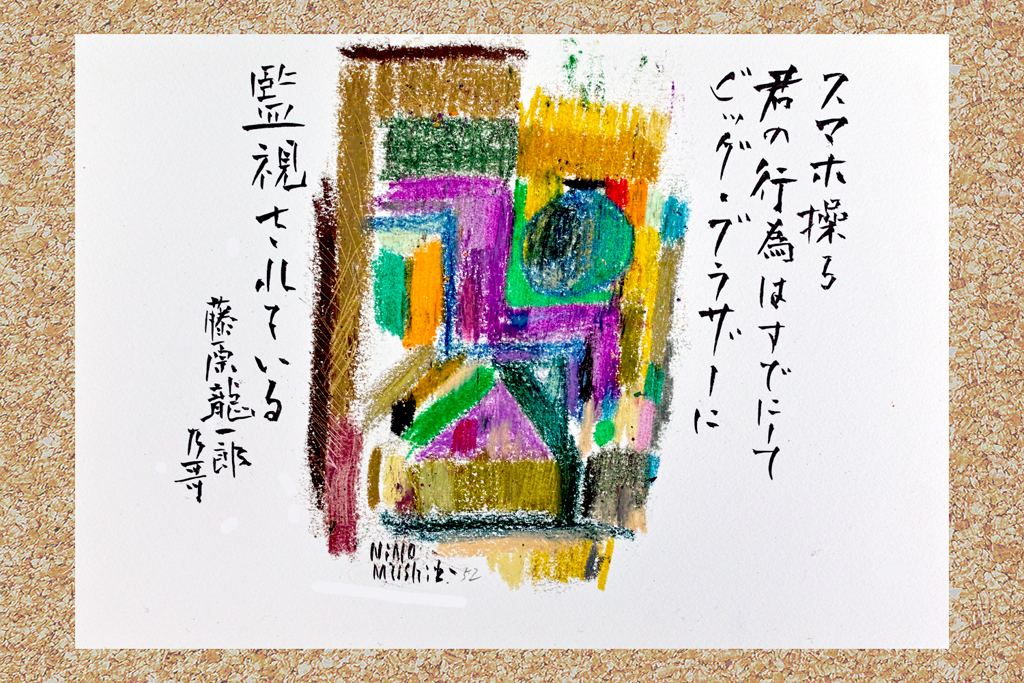 スマホ操る
君の行為はすでにして
ビッグ・ブラザーに
監視されている
藤原龍一郎
乃哥
NiNO
Mrishite 52